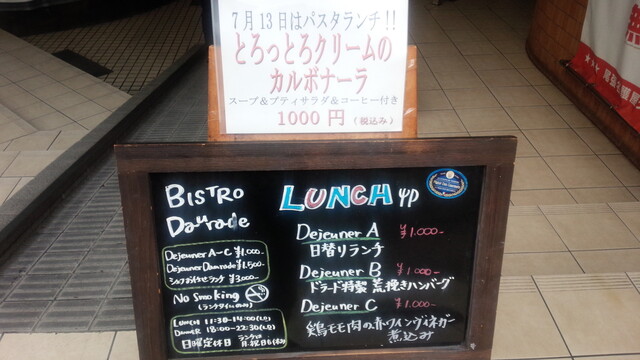 7月13日はパスタランチ!!
とろっとろクリームの
カルボナーラ
スープ&プティサラダ&コーヒー付き
1000円(税込み)
BISTRO
Daurade
Dejeuner A-C ¥1,000-
Dejeuner Daurade ¥1,500-
シェフおまかせランチ ¥3,000-
No Smoking
(ランチタイムのみ)
Lunch 11:30-14:00(L.O)
Dinner 18:00-22:30(L.O)
日曜定休日 ランチは月、祝日も休み
LUNCH
Dejeuner A ¥1.000-
日替りランチ
Dejeuner B ¥1.000-
ドラード特製 荒挽きハンバーグ
Dejeuner C ¥1.000-
鶏モモ肉の赤ワインヴィネガー
煮込み